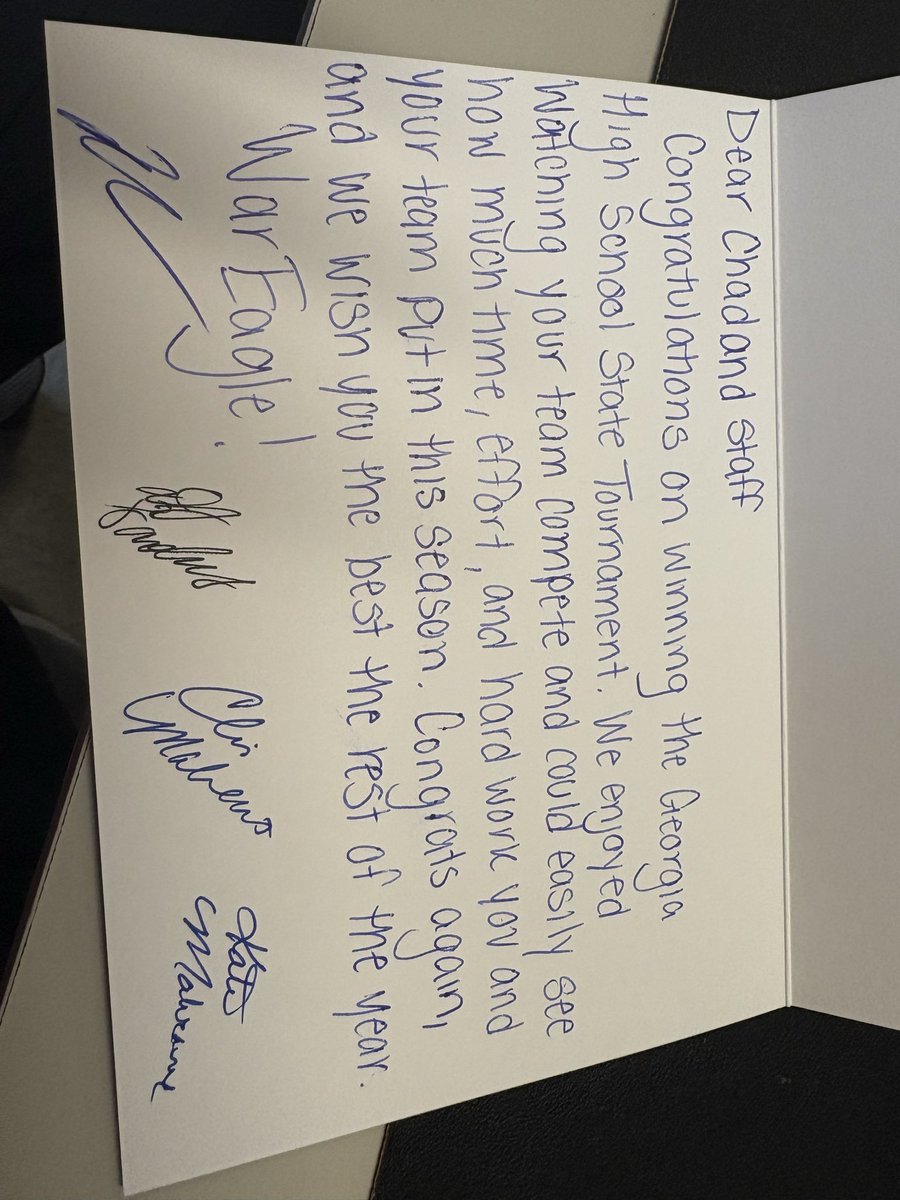 Dear Chad and Staff
Congratulations on winning the Georgia
High School State Tournament. We enjoyed
Watching your team compete and could easily see
how much time, effort, and hard work you and
your team put in this season. Congrats again,
and we wish you the best the rest of the year.
War Eagle!
Kate